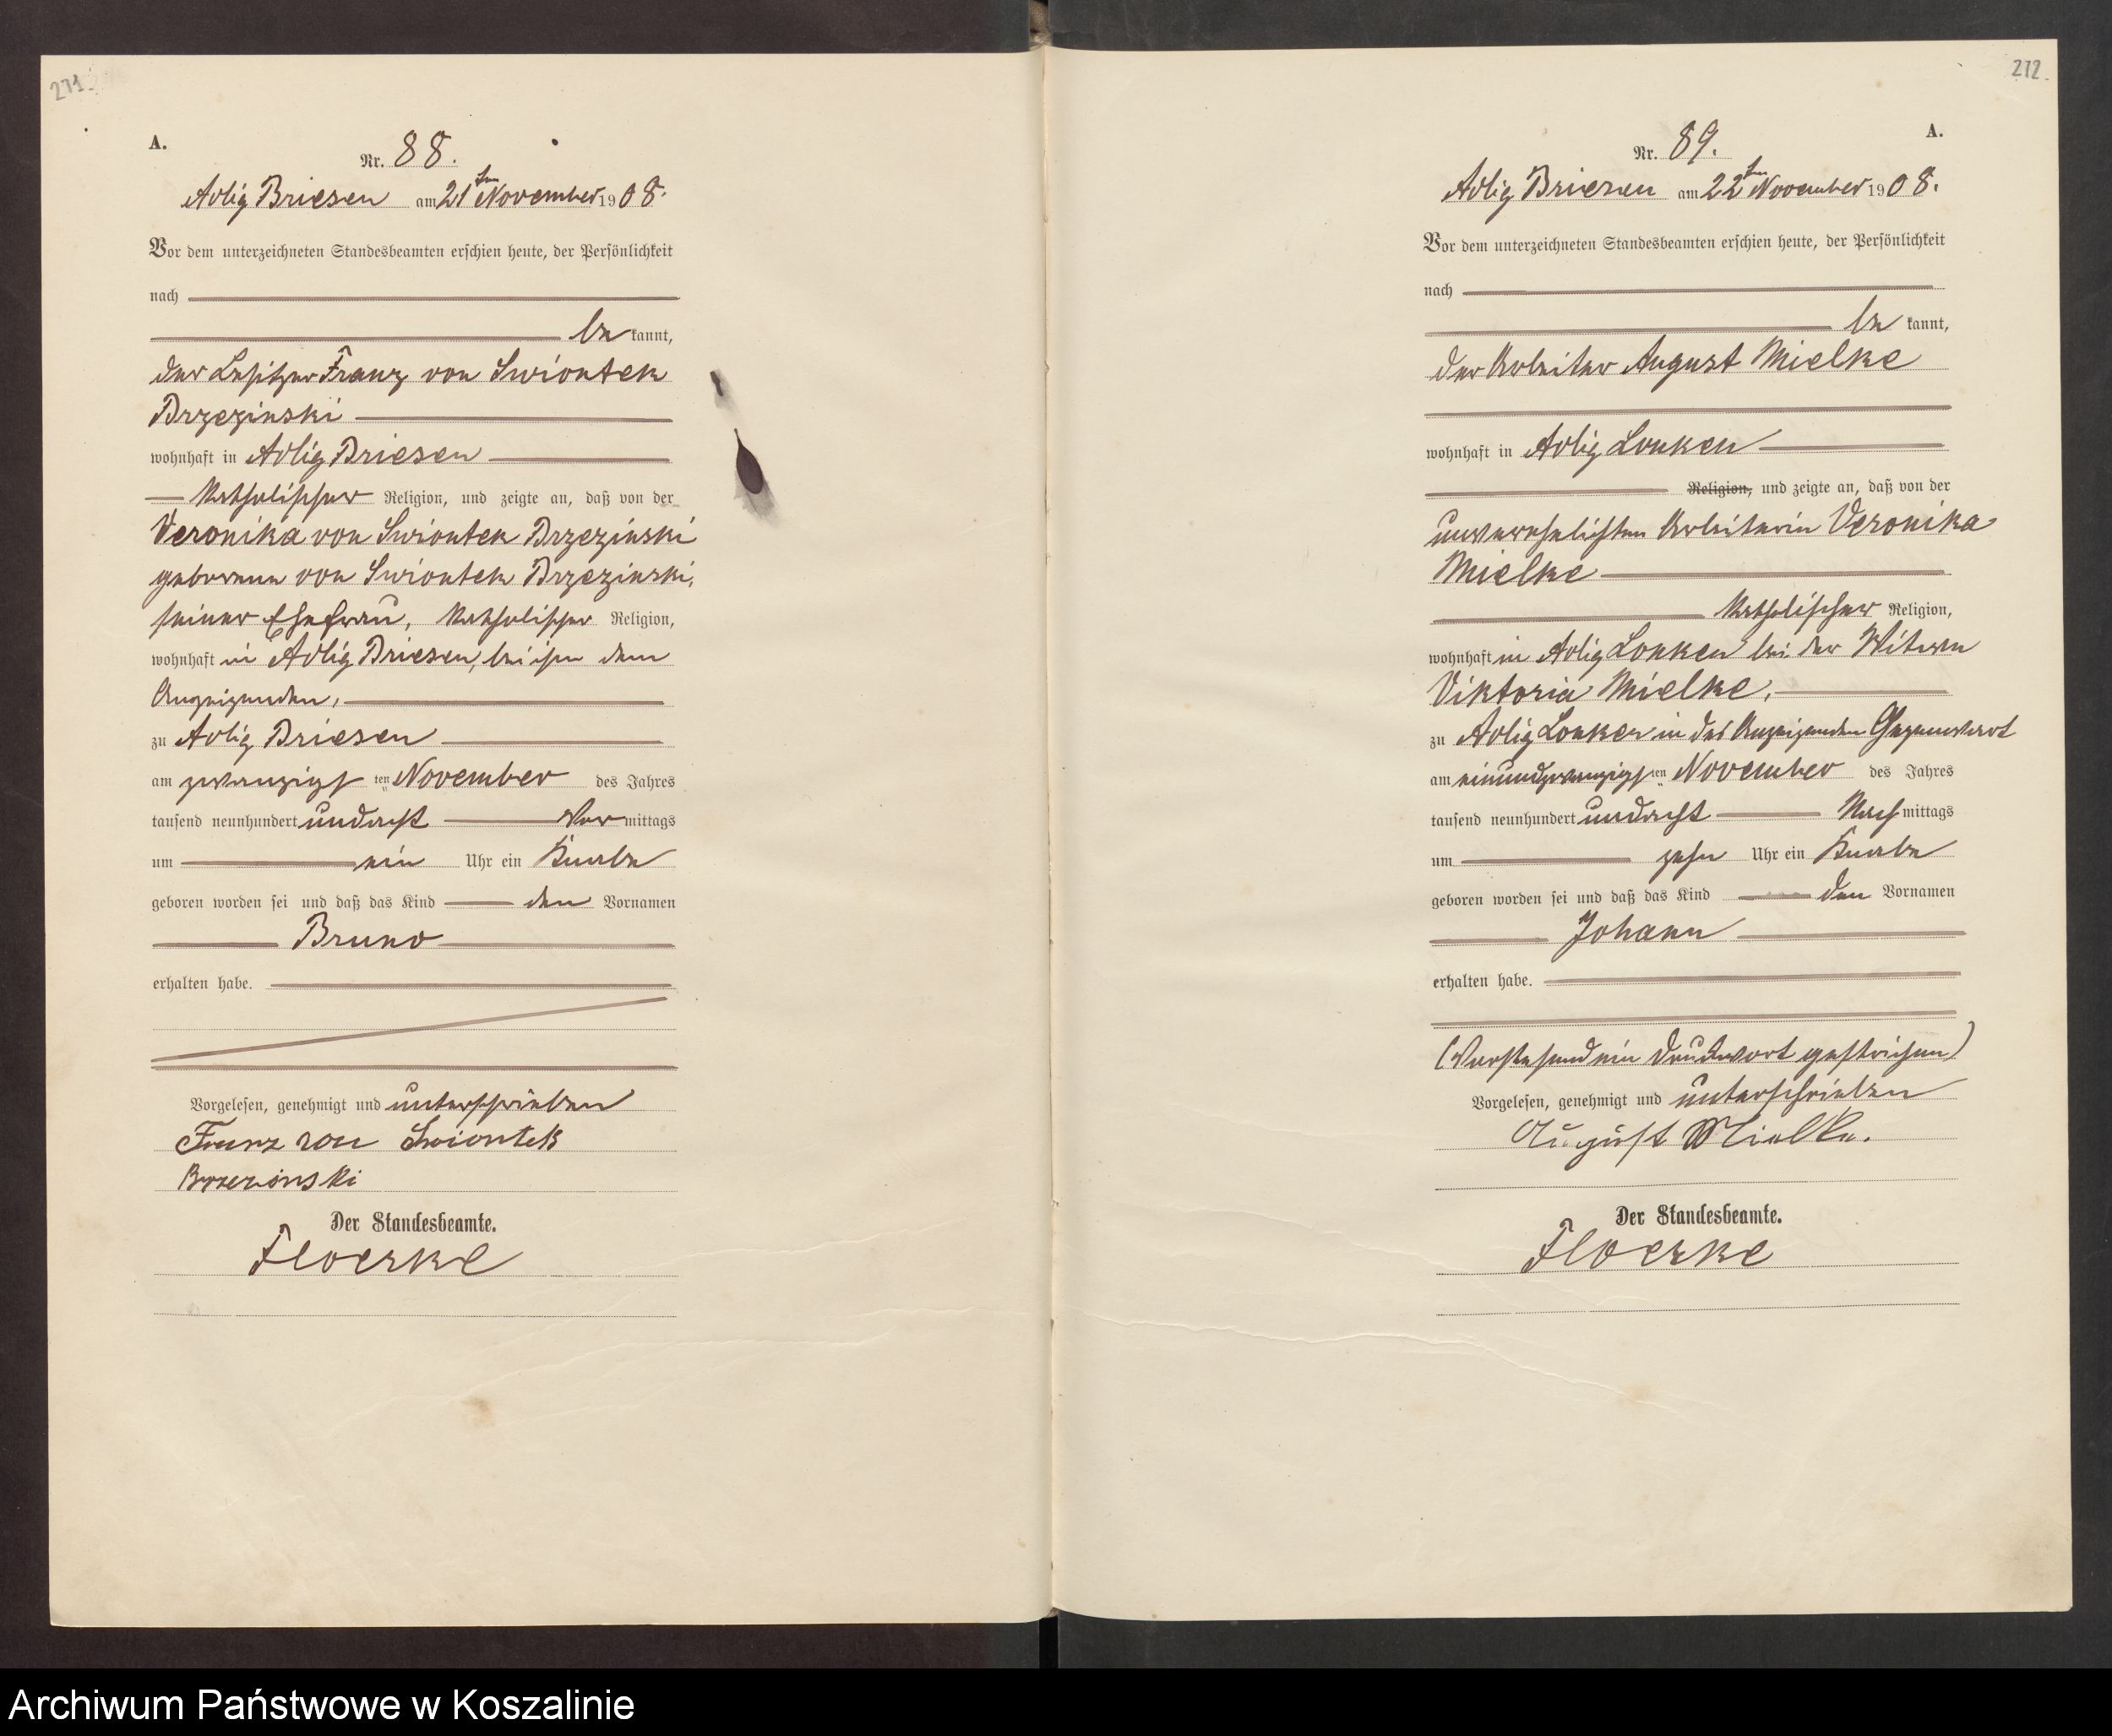 271.
A.
Nr. 88.
Adlig Briesen am 21ten November 1908.
Vor dem unterzeichneten Standesbeamten erschien heute, der Persönlichkeit
nach
be kannt,
der Besitzer Franz von Swiontek
Brzezinski
wohnhaft in Adlig Briesen
katholischer Religion, und zeigte an, daß von der
Veronika von Swiontek Brzezinski
geborenen von Swiontek Brzezinski,
seiner Ehefrau, katholischer Religion,
wohnhaft in Adlig Briesen, bei ihm dem
Anzeigenden,
zu Adlig Briesen
am zwanzigsten November des Jahres
tausend neunhundert undacht Vor mittags
um ein Uhr ein Knabe
geboren worden sei und daß das Kind den Vornamen
Bruno
erhalten habe.
Vorgelesen, genehmigt und unterschrieben
Franz von Swiontek
Brzezinski
Der Standesbeamte.
Floerke
212.
A.
Nr. 89.
Adlig Briesen am 22ten November 1908.
Vor dem unterzeichneten Standesbeamten erschien heute, der Persönlichkeit
nach
be kannt,
der Arbeiter August Mielke
wohnhaft in Adlig Lonken
Religion, und zeigte an, daß von der
unverehelichten Arbeiterin Veronika
Mielke
katholischer Religion,
wohnhaft in Adlig Lonken bei der Witwe
Viktoria Mielke,
zu Adlig Lonken in des Anzeigenden Gegenwart
am einundzwanzigsten November des Jahres
tausend neunhundert undacht Nach mittags
um zehn Uhr ein Knabe
geboren worden sei und daß das Kind den Vornamen
Johann
erhalten habe.
(Vorstehend ein Druckwort gestrichen)
Vorgelesen, genehmigt und unterschrieben
August Mielke.
Der Standesbeamte.
Floerke
Archiwum Państwowe w Koszalinie